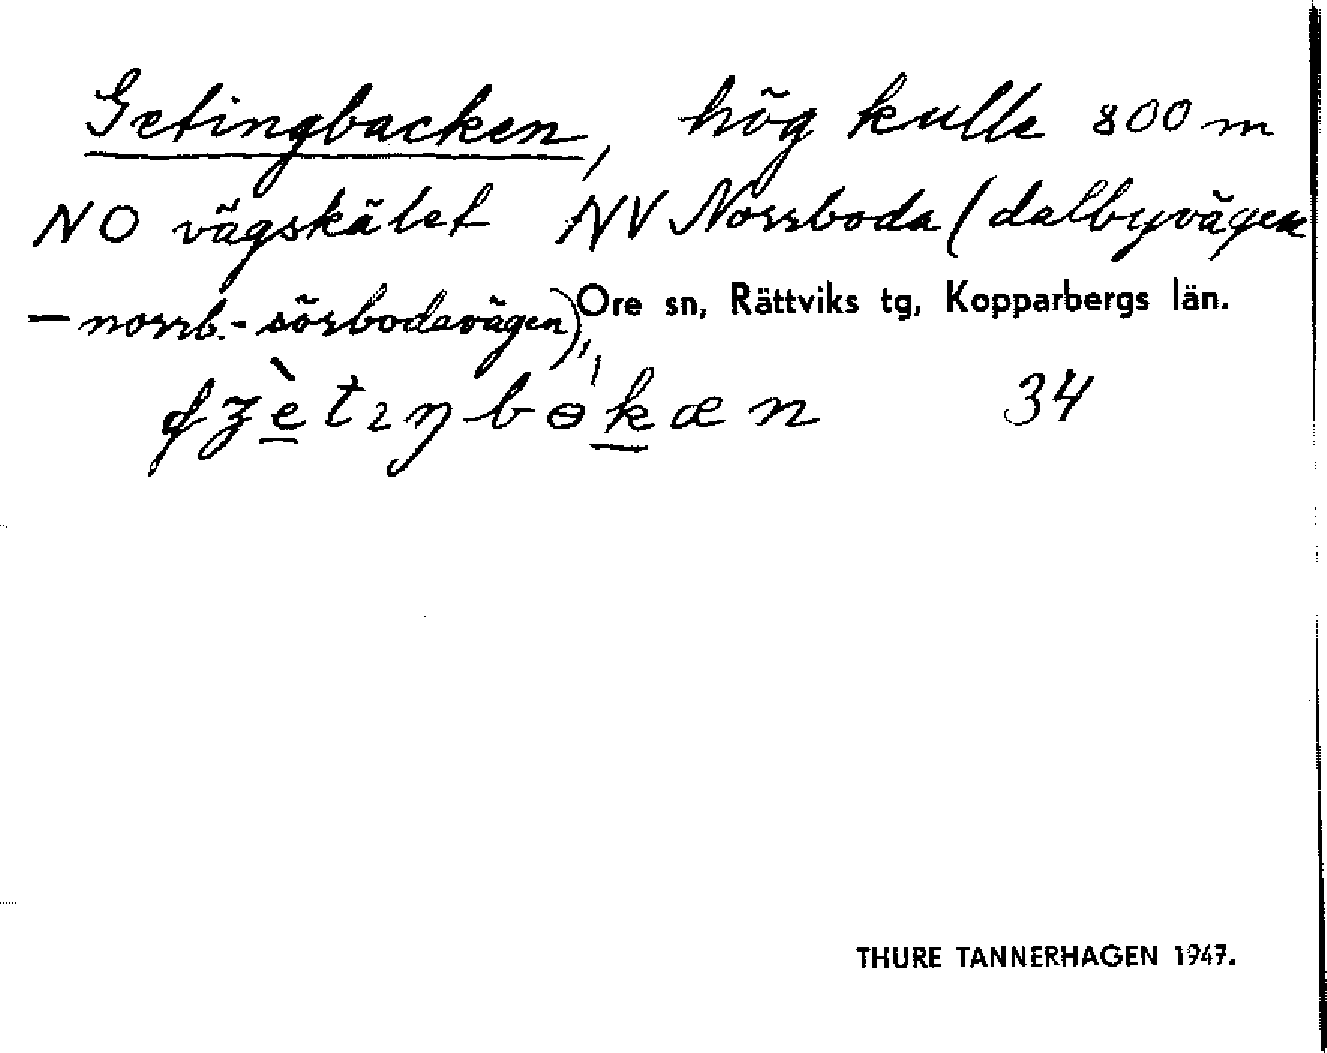 Getingbacken, hög kulle 800 m
NO vägskälet NV Norrboda (dalbyvägen
– norrb.- sörbodavägen),
Ore sn, Rättviks tg, Kopparbergs län.
34
THURE TANNERHAGEN 1947.